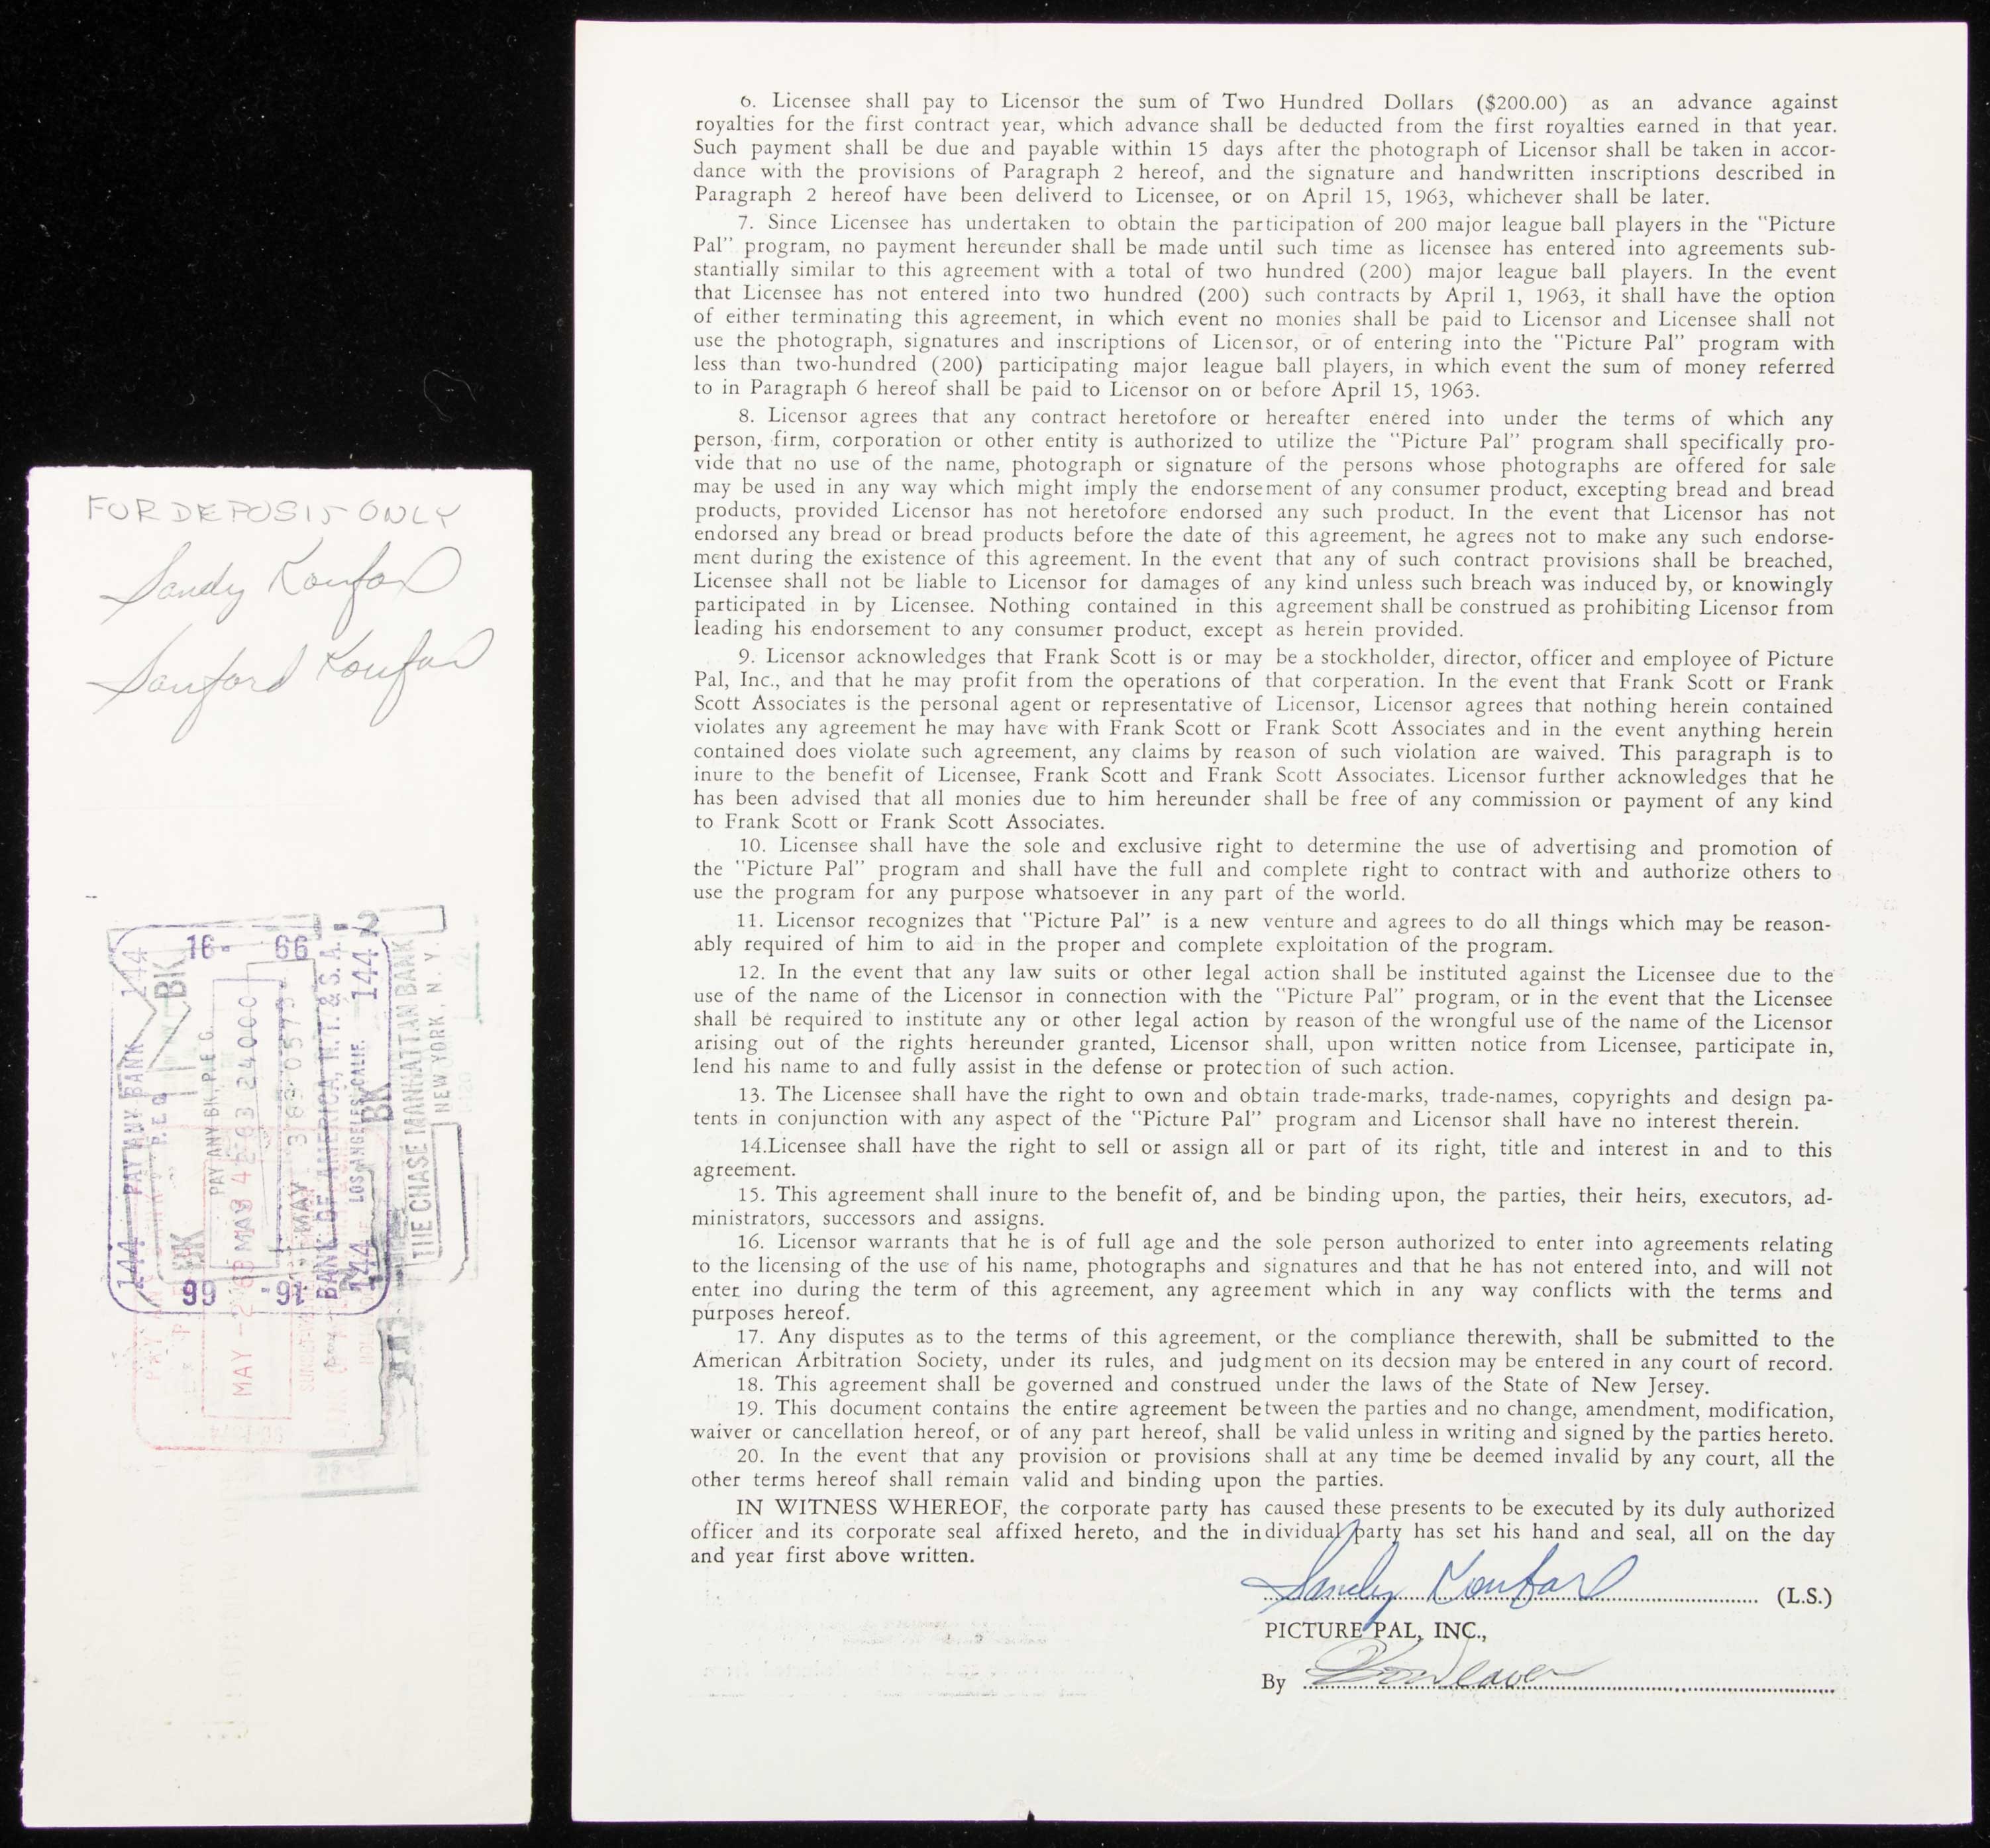 FOR DEPOSIT ONLY
Sandy Koufax
Sanford Koufax
16- 66
144 PAY ANY BANK 144
P.E.G.
BK
BK
PAY ANY BK, P.E.G.
MAY
BANK OF AMERICA, N.T. & S.A.
144 LOS ANGELES, CALIF. 144
BK
THE CHASE MANHATTAN BANK
NEW YORK, N.Y.
99 16-
MAY
6. Licensee shall pay to Licensor the sum of Two Hundred Dollars ($200.00) as an advance against
royalties for the first contract year, which advance shall be deducted from the first royalties earned in that year.
Such payment shall be due and payable within 15 days after the photograph of Licensor shall be taken in accor-
dance with the provisions of Paragraph 2 hereof, and the signature and handwritten inscriptions described in
Paragraph 2 hereof have been deliverd to Licensee, or on April 15, 1963, whichever shall be later.
7. Since Licensee has undertaken to obtain the participation of 200 major league ball players in the "Picture
Pal" program, no payment hereunder shall be made until such time as licensee has entered into agreements sub-
stantially similar to this agreement with a total of two hundred (200) major league ball players. In the event
that Licensee has not entered into two hundred (200) such contracts by April 1, 1963, it shall have the option
of either terminating this agreement, in which event no monies shall be paid to Licensor and Licensee shall not
use the photograph, signatures and inscriptions of Licensor, or of entering into the "Picture Pal" program with
less than two-hundred (200) participating major league ball players, in which event the sum of money referred
to in Paragraph 6 hereof shall be paid to Licensor on or before April 15, 1963.
8. Licensor agrees that any contract heretofore or hereafter enered into under the terms of which any
person, firm, corporation or other entity is authorized to utilize the "Picture Pal" program shall specifically pro-
vide that no use of the name, photograph or signature of the persons whose photographs are offered for sale
may be used in any way which might imply the endorsement of any consumer product, excepting bread and bread
products, provided Licensor has not heretofore endorsed any such product. In the event that Licensor has not
endorsed any bread or bread products before the date of this agreement, he agrees not to make any such endorse-
ment during the existence of this agreement. In the event that any of such contract provisions shall be breached,
Licensee shall not be liable to Licensor for damages of any kind unless such breach was induced by, or knowingly
participated in by Licensee. Nothing contained in this agreement shall be construed as prohibiting Licensor from
leading his endorsement to any consumer product, except as herein provided.
9. Licensor acknowledges that Frank Scott is or may be a stockholder, director, officer and employee of Picture
Pal, Inc., and that he may profit from the operations of that corperation. In the event that Frank Scott or Frank
Scott Associates is the personal agent or representative of Licensor, Licensor agrees that nothing herein contained
violates any agreement he may have with Frank Scott or Frank Scott Associates and in the event anything herein
contained does violate such agreement, any claims by reason of such violation are waived. This paragraph is to
inure to the benefit of Licensee, Frank Scott and Frank Scott Associates. Licensor further acknowledges that he
has been advised that all monies due to him hereunder shall be free of any commission or payment of any kind
to Frank Scott or Frank Scott Associates.
10. Licensee shall have the sole and exclusive right to determine the use of advertising and promotion of
the "Picture Pal" program and shall have the full and complete right to contract with and authorize others to
use the program for any purpose whatsoever in any part of the world.
11. Licensor recognizes that "Picture Pal" is a new venture and agrees to do all things which may be reason-
ably required of him to aid in the proper and complete exploitation of the program.
12. In the event that any law suits or other legal action shall be instituted against the Licensee due to the
use of the name of the Licensor in connection with the "Picture Pal" program, or in the event that the Licensee
shall be required to institute any or other legal action by reason of the wrongful use of the name of the Licensor
arising out of the rights hereunder granted, Licensor shall, upon written notice from Licensee, participate in,
lend his name to and fully assist in the defense or protection of such action.
13. The Licensee shall have the right to own and obtain trade-marks, trade-names, copyrights and design pa-
tents in conjunction with any aspect of the "Picture Pal" program and Licensor shall have no interest therein.
14.Licensee shall have the right to sell or assign all or part of its right, title and interest in and to this
agreement.
15. This agreement shall inure to the benefit of, and be binding upon, the parties, their heirs, executors, ad-
ministrators, successors and assigns.
16. Licensor warrants that he is of full age and the sole person authorized to enter into agreements relating
to the licensing of the use of his name, photographs and signatures and that he has not entered into, and will not
enter ino during the term of this agreement, any agreement which in any way conflicts with the terms and
purposes hereof.
17. Any disputes as to the terms of this agreement, or the compliance therewith, shall be submitted to the
American Arbitration Society, under its rules, and judgment on its decsion may be entered in any court of record.
18. This agreement shall be governed and construed under the laws of the State of New Jersey.
19. This document contains the entire agreement between the parties and no change, amendment, modification,
waiver or cancellation hereof, or of any part hereof, shall be valid unless in writing and signed by the parties hereto.
20. In the event that any provision or provisions shall at any time be deemed invalid by any court, all the
other terms hereof shall remain valid and binding upon the parties.
IN WITNESS WHEREOF, the corporate party has caused these presents to be executed by its duly authorized
officer and its corporate seal affixed hereto, and the individual party has set his hand and seal, all on the day
and year first above written.
Sandy Koufax (L.S.)
PICTURE PAL, INC.,
By Weaver